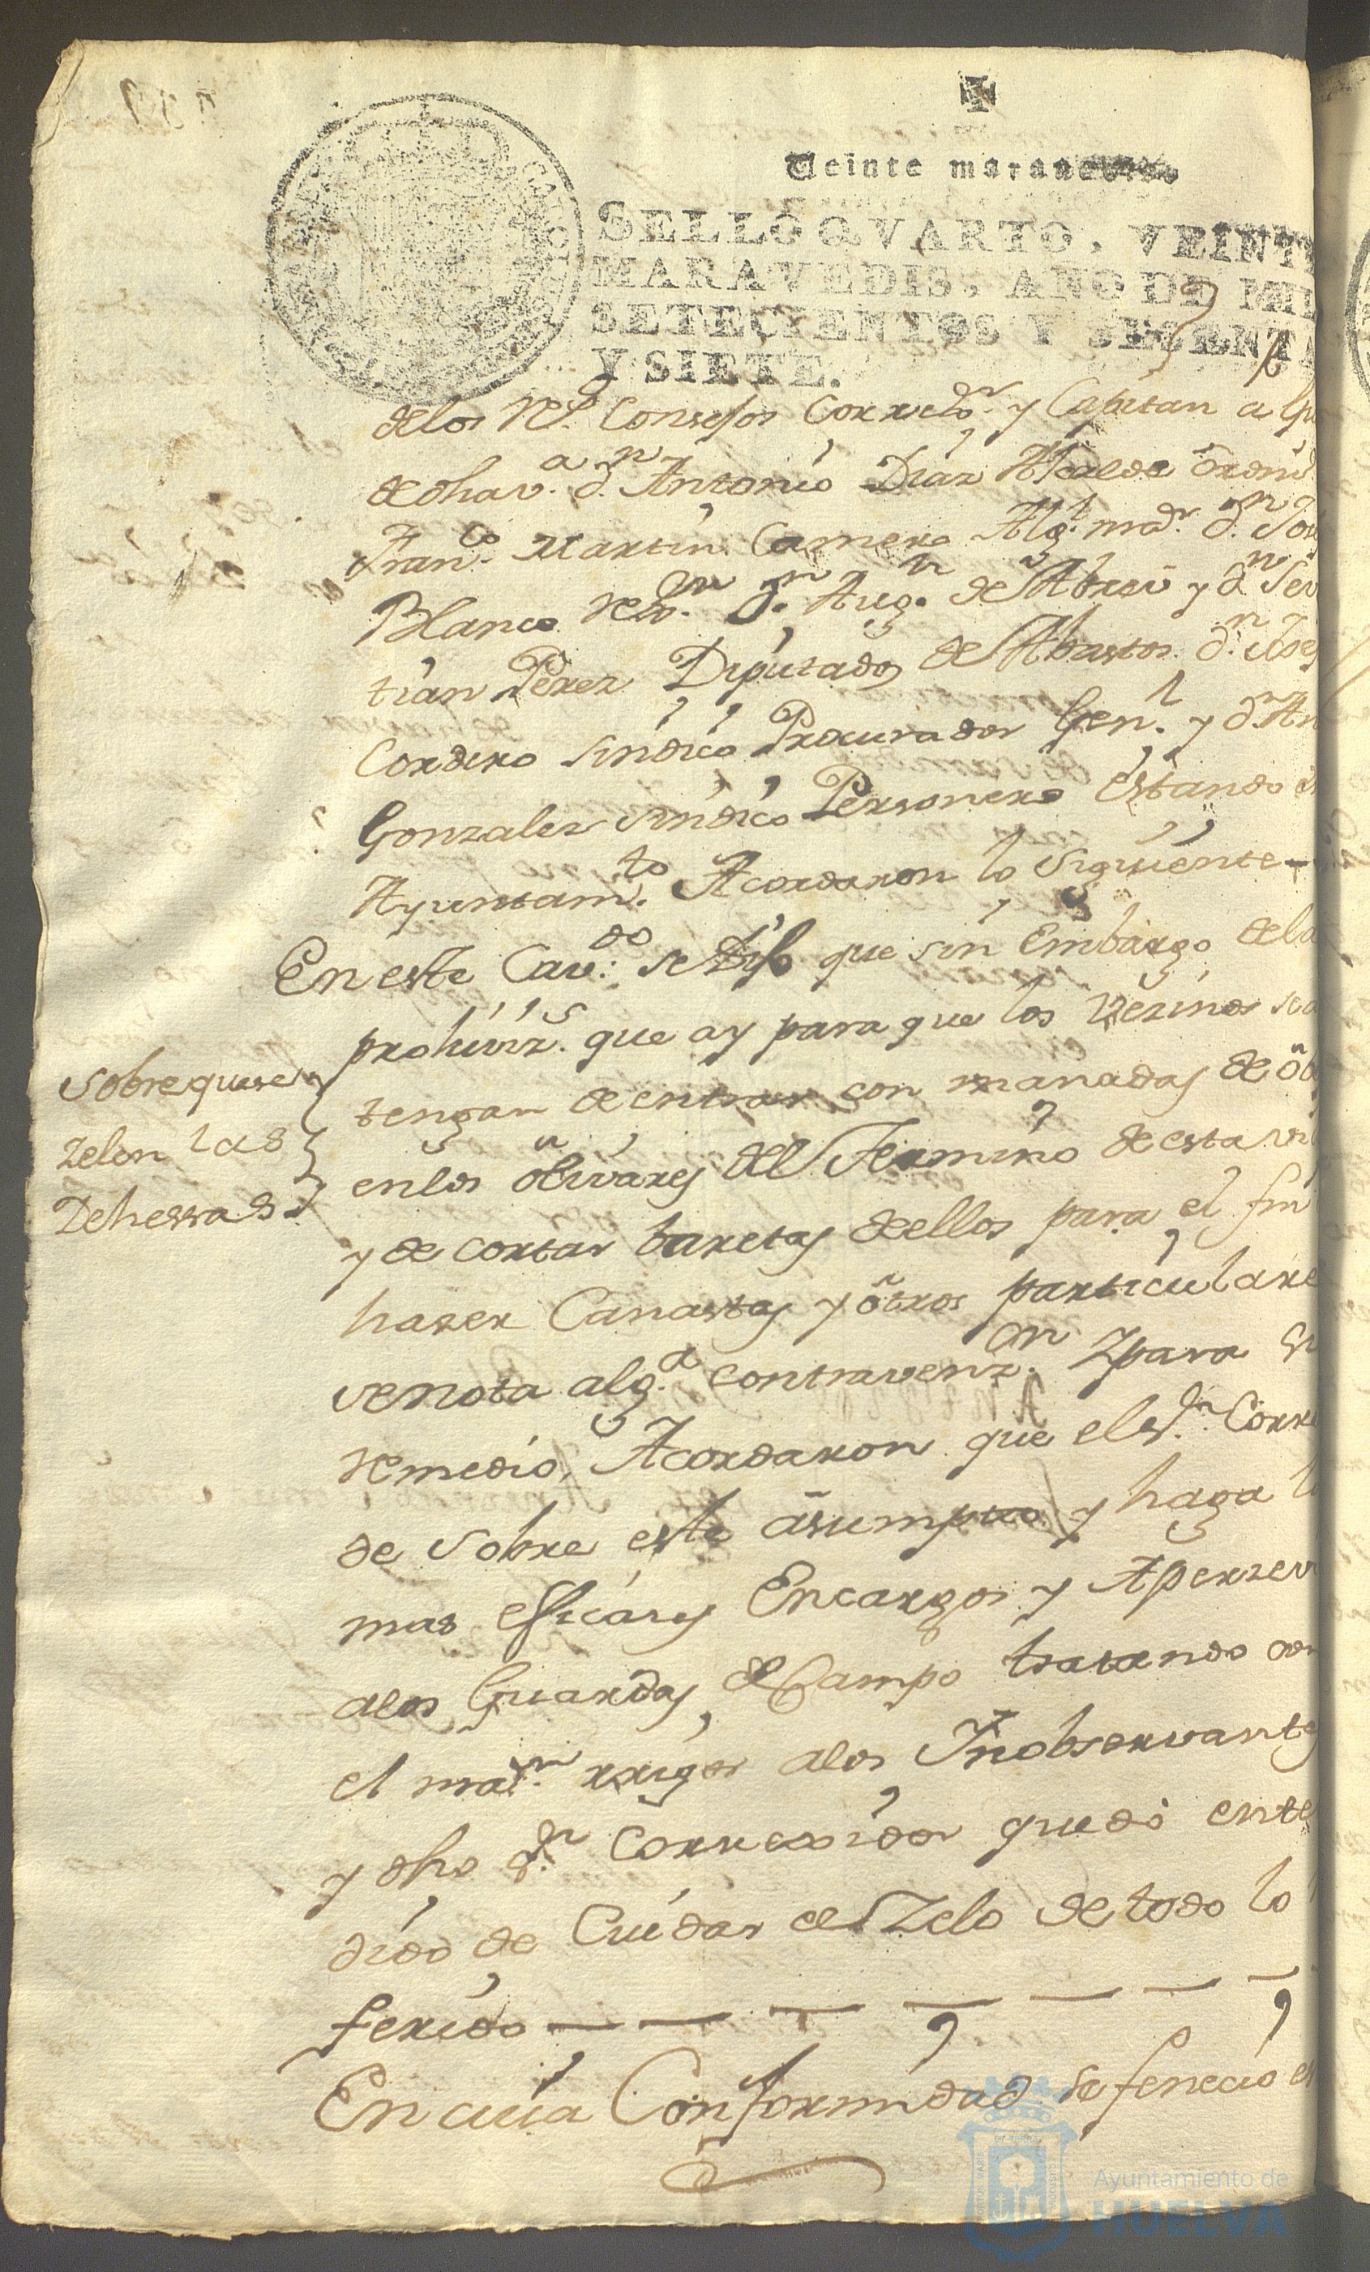 Veinte maravedis
SELLO QVARTO, VEINT
MARAVEDIS, AÑO DE MIL
SETECIENTOS Y SESENT
Y SIETE.
delos Rs. Consejos Correxor. y Capitan a
de dha va. dn. Antonio Diaz Alcalde ordin
Franco. Martin Camero Algl. mar. dn. Jos
Blanco Rexor. dn. Augn. de Abreu y dn. Sevas
tian Perez Diputados de Abastos dn.
Cordero Sindico Procurador Genl. y dn. An
Gonzales Sindico Personero estando en
Ayuntamto. Acordaron lo Siguiente—
En este Cavdo. se dijo que sin Embargo dela
prohiviz. que ay para que los vezinos
tengan de entrar con manadas de
enlos olivares del Termino de esta vi
y de cortar baretas dellos para el fin
hazer Canastas y otros particulare
se nota alga. contravenzon. Y para su
remedio, Acordaron que el sr. Corre
de sobre este asumpto y haga l
mas eficazes Encargos y Aperzev
alos Guardas del Campo tratando con
el maior. rrigor alos Inobservantes
y dho sr. Correxidor quedó enten
dido de Cuidar el Zelo de todo lo
ferido — — — — — — —
En cuia Conformidad se fenecio es
Sobre que se
zelen las
Dehessas
Ayuntamiento de
HUELVA